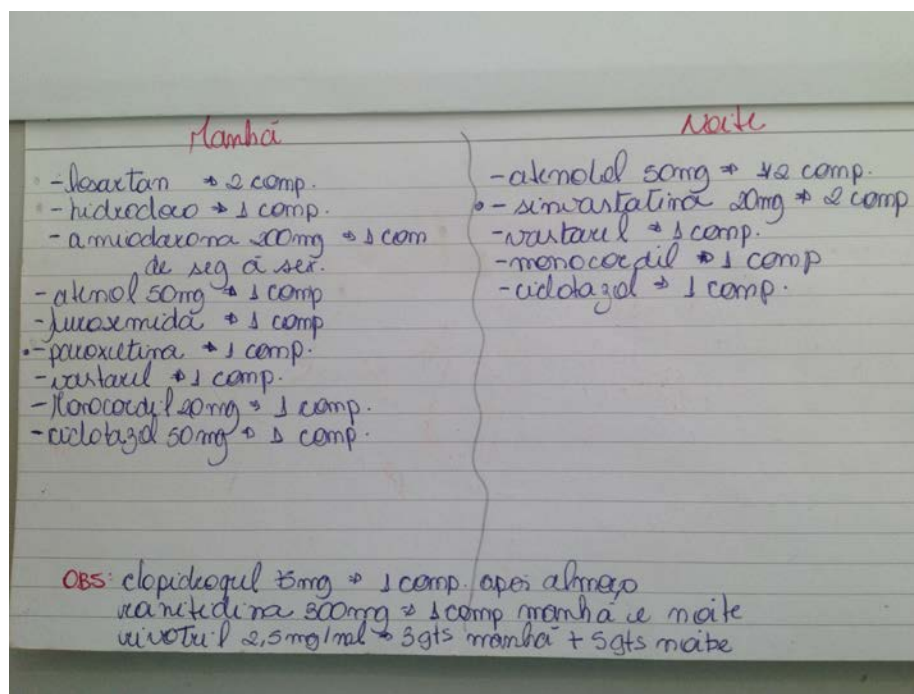 Manhã
- losartan → 2 comp.
- hidrocloro → 1 comp.
- amiodarona 200mg → 1 com
de seg à sex.
- atenol 50mg → 1 comp
- furosemida → 1 comp
- paroxetina → 1 comp.
- vastarel → 1 comp.
- Monocordil 20mg → 1 comp.
- ciclotazol 50mg → 1 comp.
Noite
- atenolol 50mg → 1/2 comp.
- sinvastatina 20mg → 2 comp
- vastarel → 1 comp.
- monocordil → 1 comp
- ciclotazol → 1 comp.
OBS: clopidrogul 75mg → 1 comp. após almoço
ranitidina 300mg → 1 comp manhã e noite
rivotril 2,5mg/ml → 5gts manhã + 5gts noite